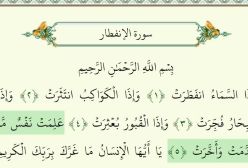 سورة الإنفطار
بِسْمِ اللَّهِ الرَّحْمَٰنِ الرَّحِيمِ
السَّمَاءُ انفَطَرَتْ ﴿١﴾ وَإِذَا الْكَوَاكِبُ انتَثَرَتْ ﴿٢﴾ وَإِذَا
فُجِّرَتْ ﴿٣﴾ وَإِذَا الْقُبُورُ بُعْثِرَتْ ﴿٤﴾ عَلِمَتْ نَفْسٌ
وَأَخَّرَتْ ﴿٥﴾ يَا أَيُّهَا الْإِنسَانُ مَا غَرَّكَ بِرَبِّكَ الْكَرِيمِ